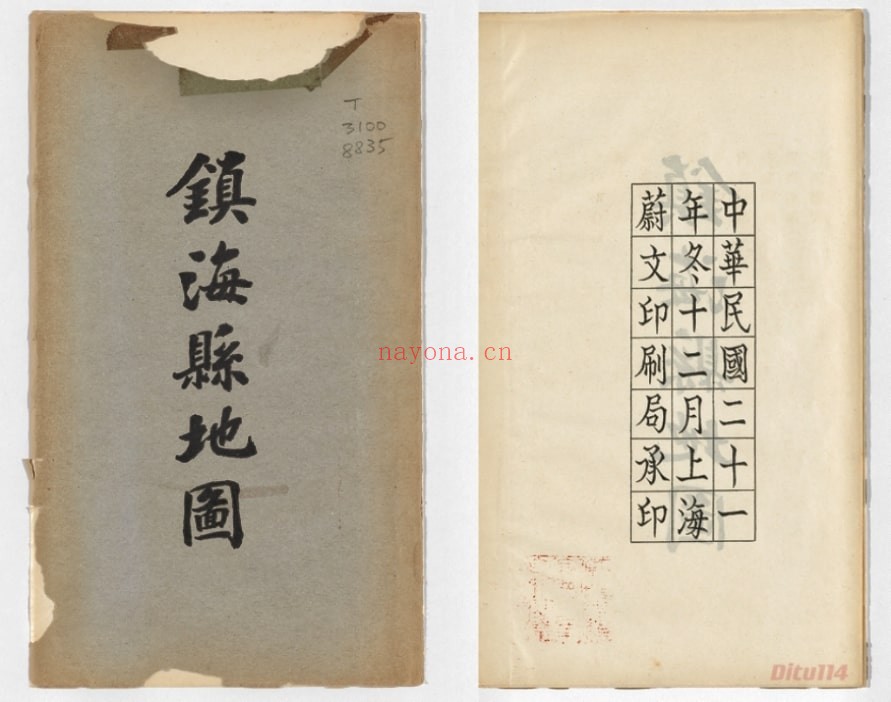 T
3100
8835
鎮海縣地圖
nayona.cn
中華民國二十一
年冬十二月上海
蔚文印刷局承印
Ditu114